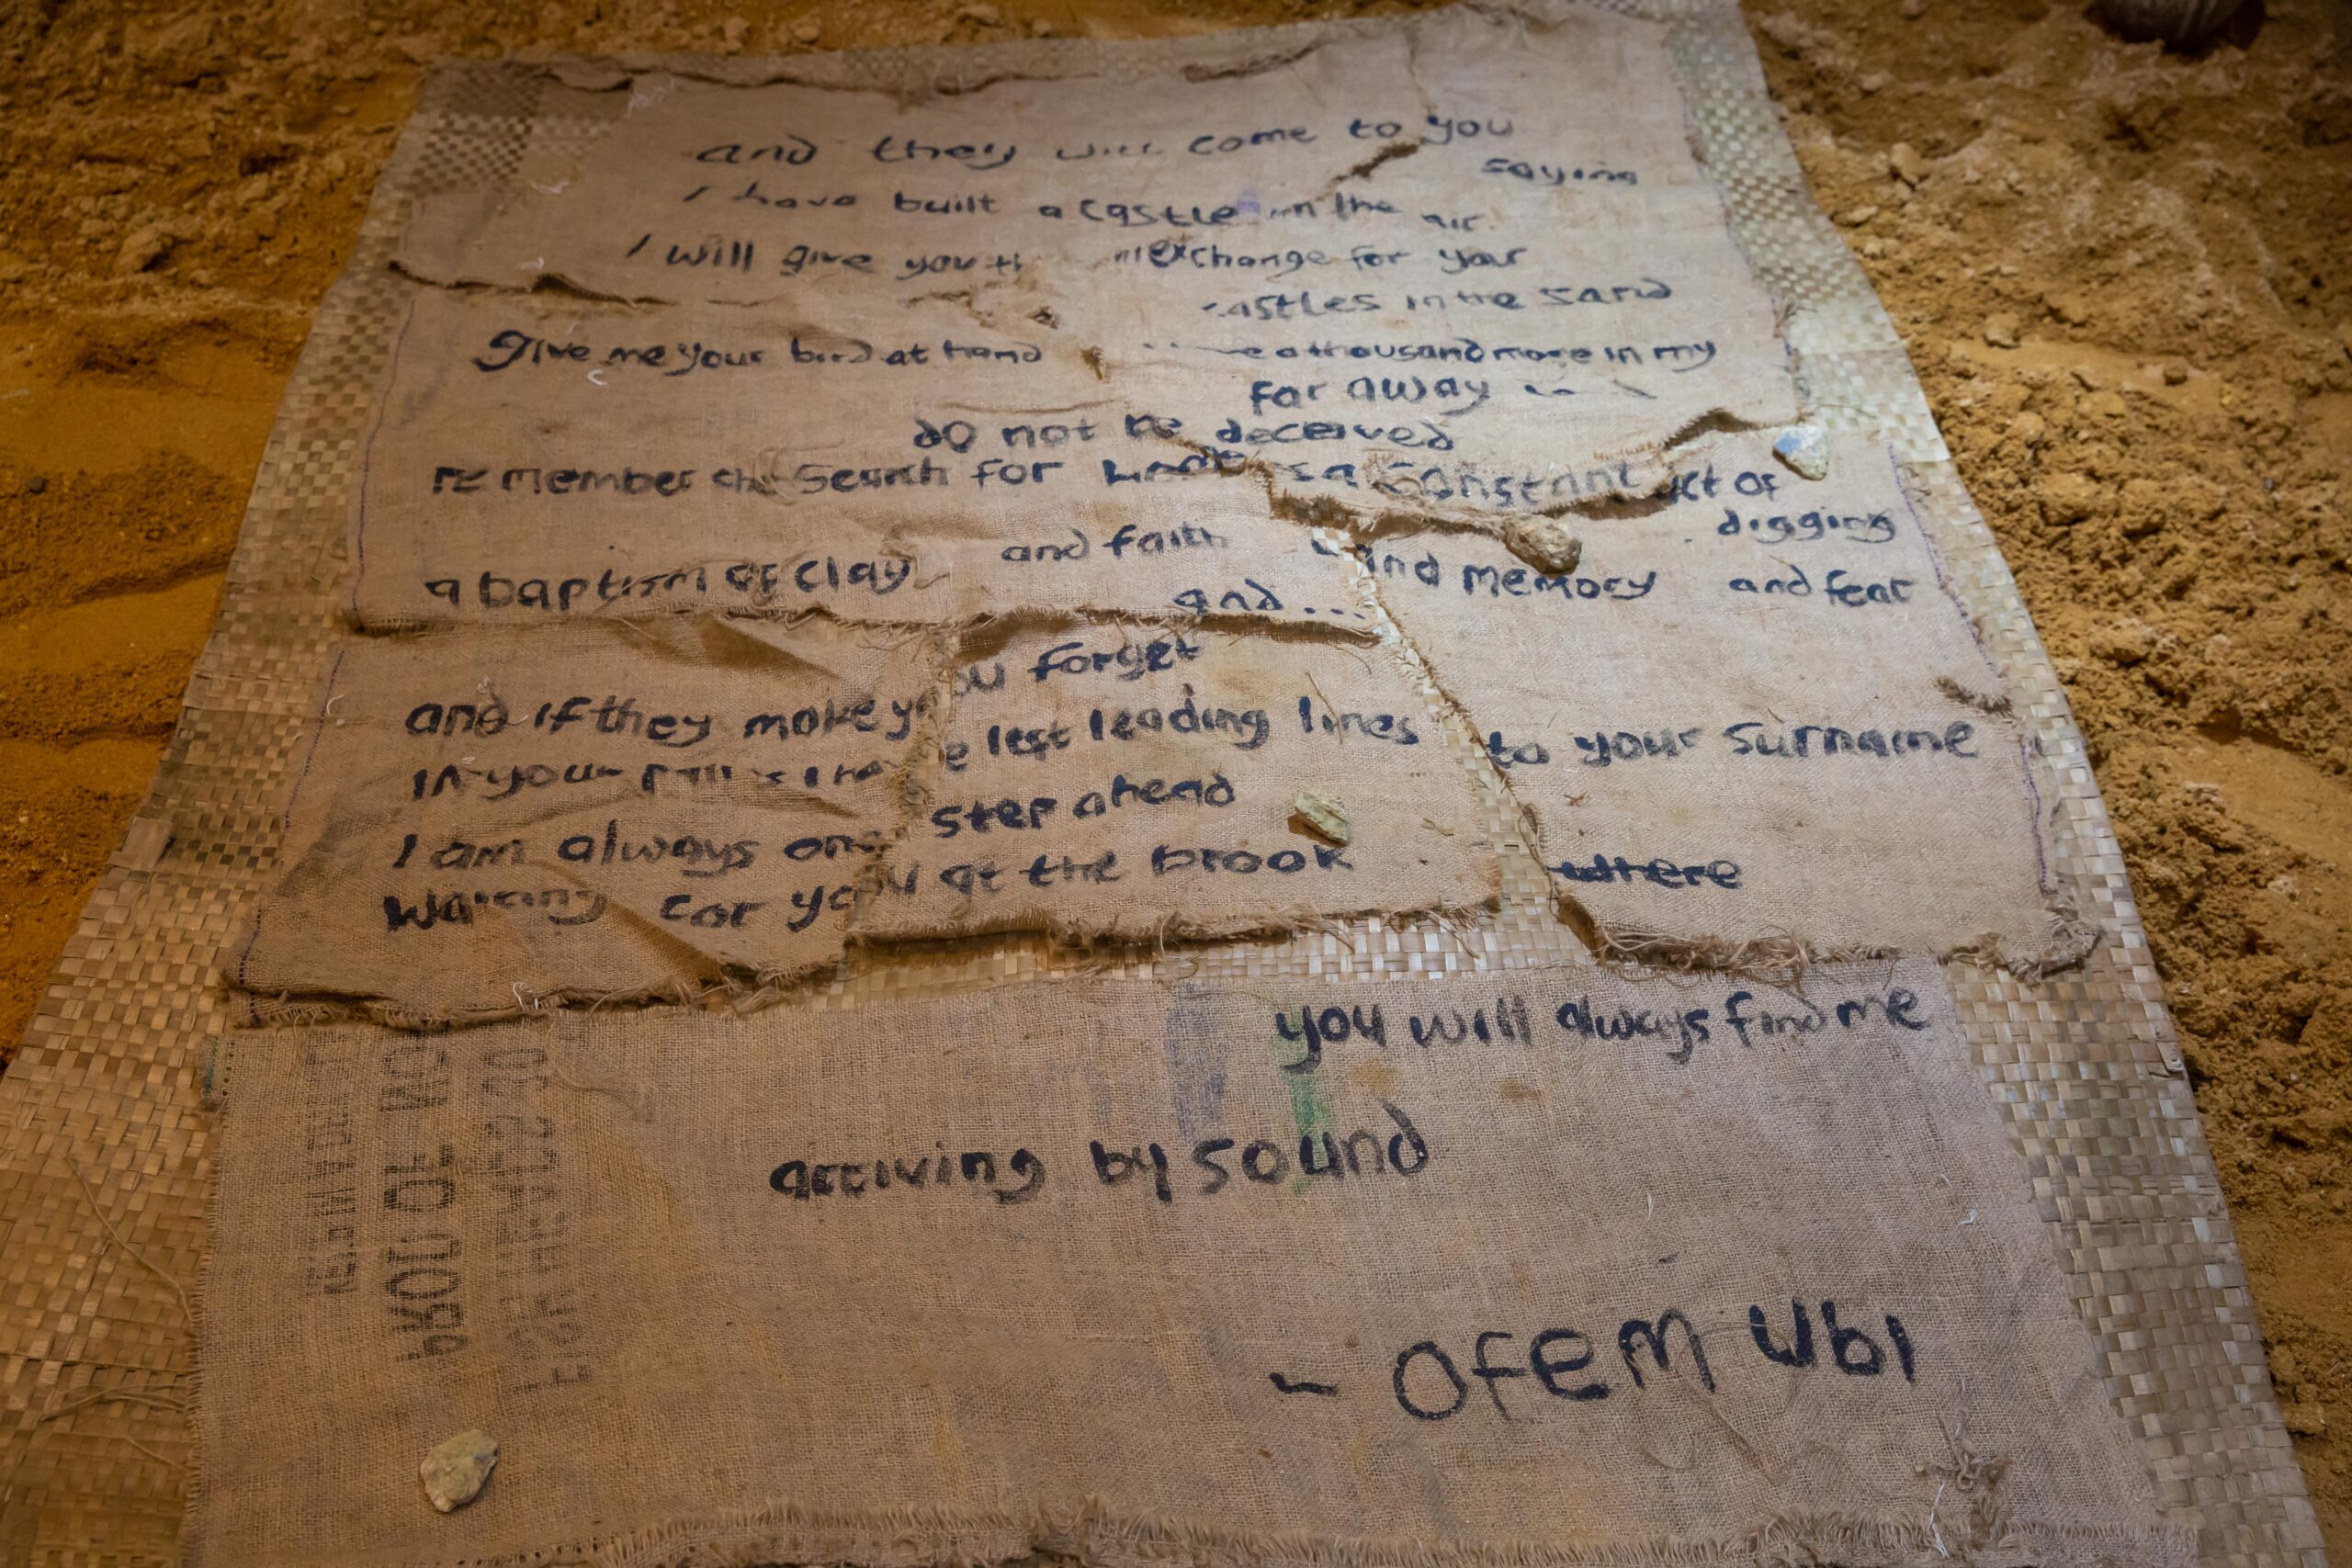 and they will come to you
saying
I have built a castle in the air
I will give you exchange for your
castles in the sand
Give me your bird at hand a thousand more in my
far away
do not be deceived
remember the search for is a constant act of
digging
a baptism of clay and faith and memory and fear
and...
and if they make you forget
in your I have last leading lines to your surname
I am always one step ahead
waiting for you at the brook where
you will always find me
arriving by sound
- OfEM Ubi
PROD OF